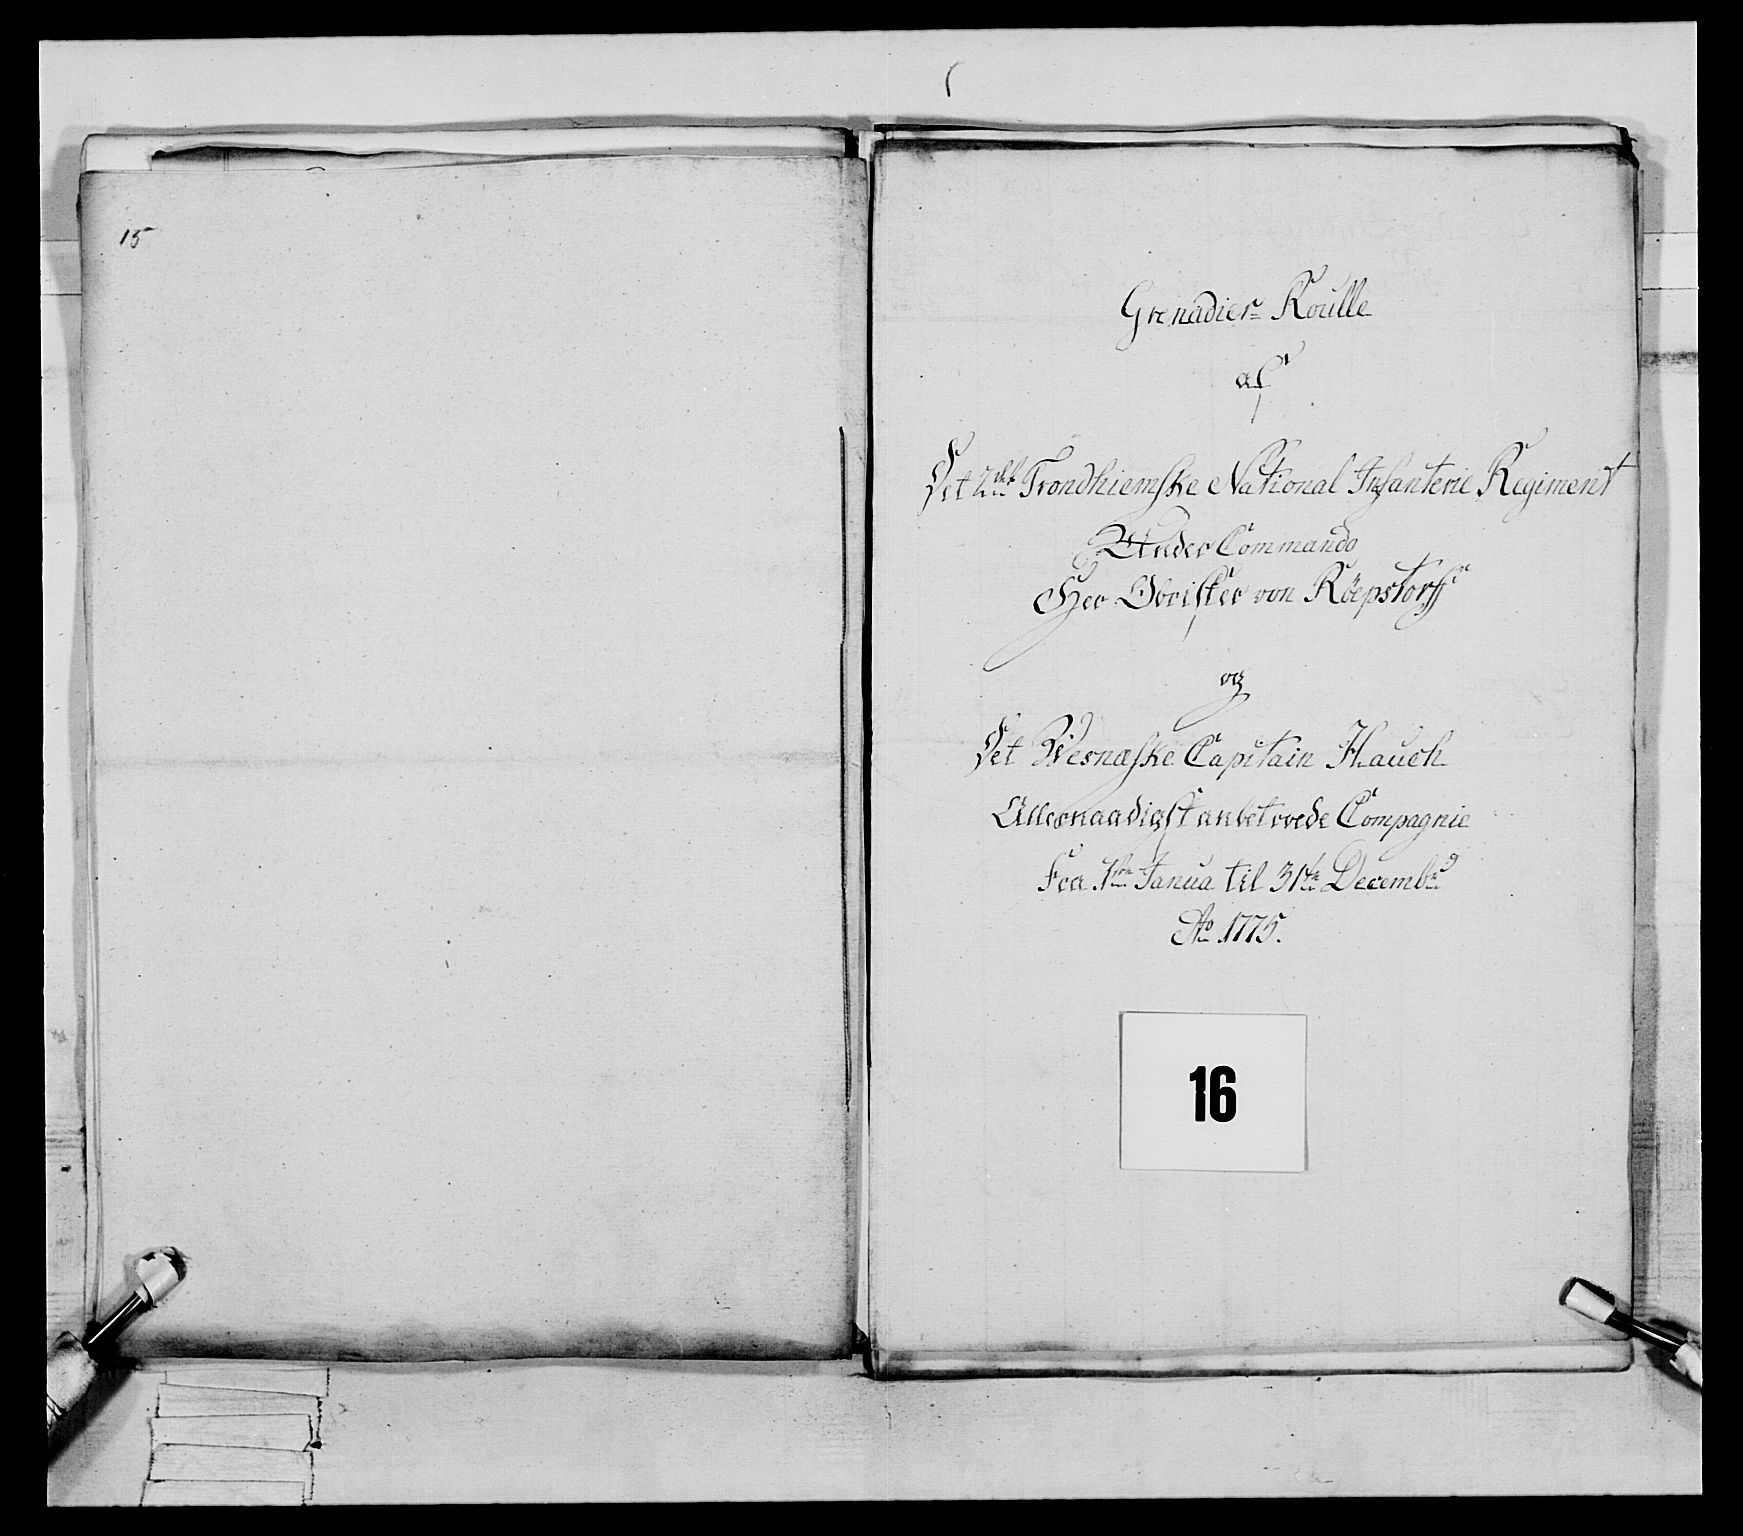 15
Grenadier= Roulle
af
Det 2det Trondhiemske National Infanterie Regiment
Under Commando
Her Obrister von Röepstorff
og
Det Wesnæske Capitain Hauch
Allernaadigst anbetroede Compagnie
Fra 1ste Janua til 31te Decembr
Ao 1775.
16